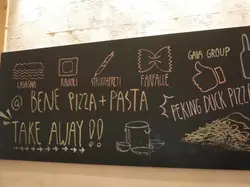 LASAGNA RAVIOLI STROZZAPRETI FARFALLE GAIA GROUP
@ BENE PIZZA + PASTA
PEKING DUCK PIZZE
TAKE AWAY!!